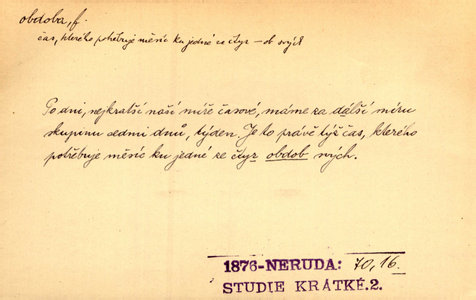 obdoba, f.
čas, kterého potřebuje měsíc ku jedné ze čtyř — ob svých
Po dni, nejkratší naší míře časové, máme za další míru
skupinu sedmi dnů, týden. Je to právě týž čas, kterého
potřebuje měsíc ku jedné ze čtyr obdob svých.
1876-NERUDA: 70,16.
STUDIE KRÁTKÉ.2.